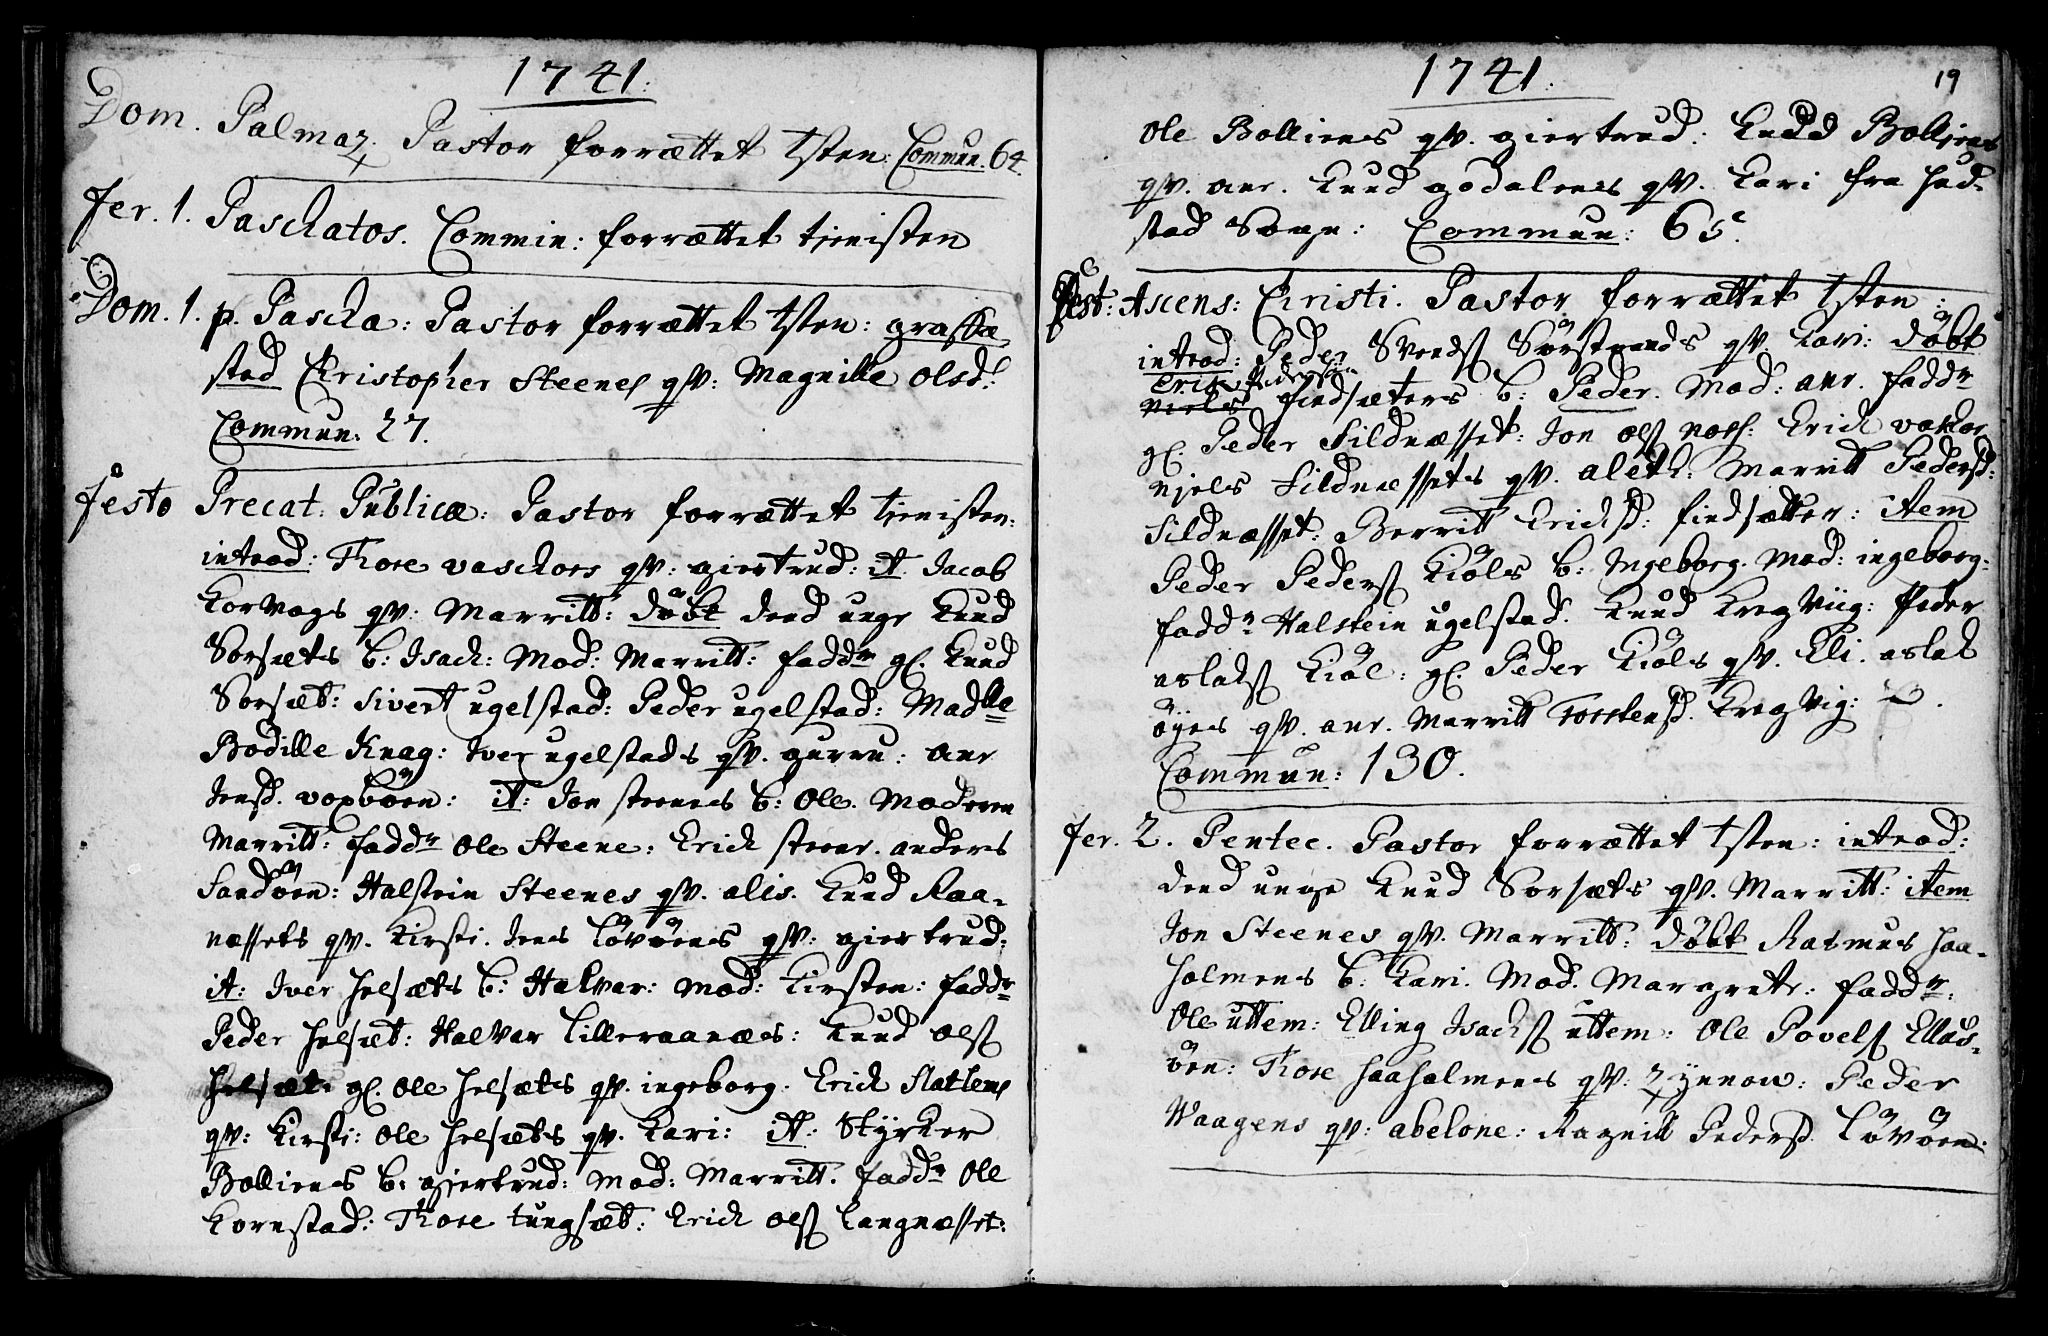 1741:
Dom. Palmaz. Pastor forrættet tsten: Commun. 64.
Fer. 1. Paschatos. Commin: forrættet tienisten
Dom. 1. p. Pascha: Pastor forrættet tsten:
sted Christopher Steenes qv: Magnille Olsd:
Commun: 27.
Festo Precat: Publicæ: Pastor forrættet tienisten:
introd: Thore vaschors qv: giertrud: it Jacob
Korvogs qv: Marritt: døbt dend unge Knud
Sorsæts b: Isach: Mod: Marritt: fadd:r gl. Knud
Sorsæt: Sivert ugelstad: Peder ugelstad: Madlle
Bodille Knag: Iver ugelstads qv. gurru: ane
Jensd. voxbøen: it: Jon steenes b: Ole. Moderen
Marritt: fadd:r Ole Steene: Erich steene. anders
Sandøen: Halstein Steenes qv. alis. Knud Raa-
næssets qv. Kirsti. Jens Løvøens qv: giertrud:
it: Iver helsæts b: Halvar: Mod: Kirsten: fadd:r
Peder helsæt: Halvar Lilleraanæs: Knud ols
helsæt: gl. Ole helsæts qv. ingeborg: Erich Slatlems
qv: Kirsti: Ole helsæts qv. Kari: it: Styrker
Bolliens b: giertrud: Mod: Marritt. fadd:r Ole
Kornstad: Thore tungsæt: Erich ols Langnæsset:
1741: 19
Ole Bolliens qv. giertrud: Knud Bolliens
qv. ane. Knud godalens qv. Kari fra had-
stad Sogn: Commun: 65.
Fest: Ascens: Christi. Pastor forrættet tsten:
introd: Peder Svends Sørstrands qv. Kari: døbt
Erik Pedersen
niels fiedsæters b: Peder. Mod: ane. fadd:r
gl. Peder Sildnæsset: Jon ols noss: Erich
njels Sildnæssets qv. aleth: Marritt Pedersd:
Sildnæsset: Berritt Erichsd: fiedsætter: item
Peder Peders Kiøls b: Ingeborg. Mod: ingeborg:
fadd:r Halstein ugelstad. Knud Kregviig: Peder
aslaks Kiøl: gl. Peder Kiøls qv. Eli. aslak
øyes qv. ane. Marritt Torstensd. Kregvig:
Commun: 130.
Fer. 2. Pentec. Pastor forrættet tsten: introd:
dend unge Knud Sorsæts qv. Marritt: item
Jon Steenes qv. Marritt: døbt Rasmus haa-
holmens b: Kari. Mod. Margrete: fadd:r:
Ole uttem: Elling Isachs uttem: Ole Povels Ellus-
øen: Thore haaholmens qv: Zynnow: Peder
Waagens qv: abelone: Ragnill Pedersd. Løvøen: